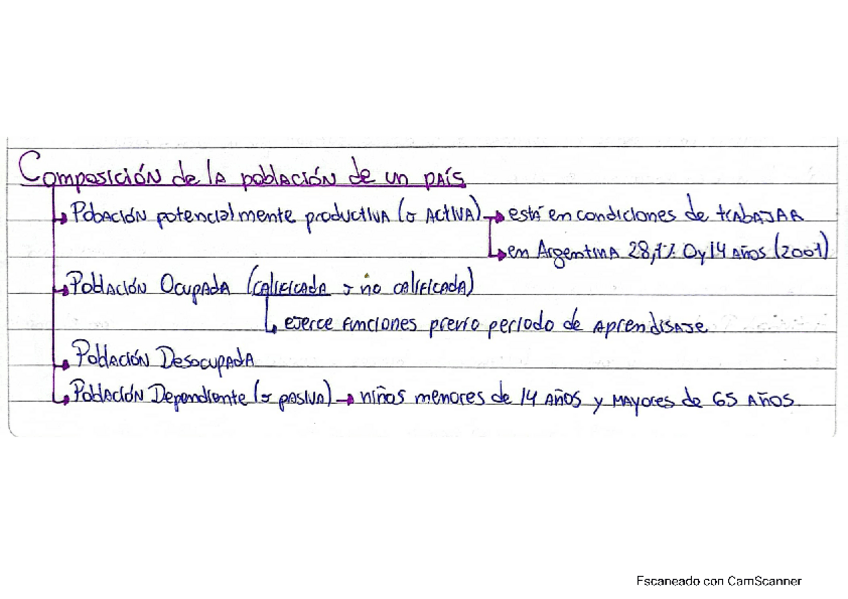 Composición de la población de un país
Pobación potencialmente productiva (o activa) → está en condiciones de trabajar
en Argentina 28,1% 0 y 14 años (2001)
Población Ocupada (calificada y no calificada)
ejerce funciones previo periodo de aprendisaje
Población Desocupada
Población Dependiente (o pasiva) → niños menores de 14 años y mayores de 65 años
Escaneado con CamScanner